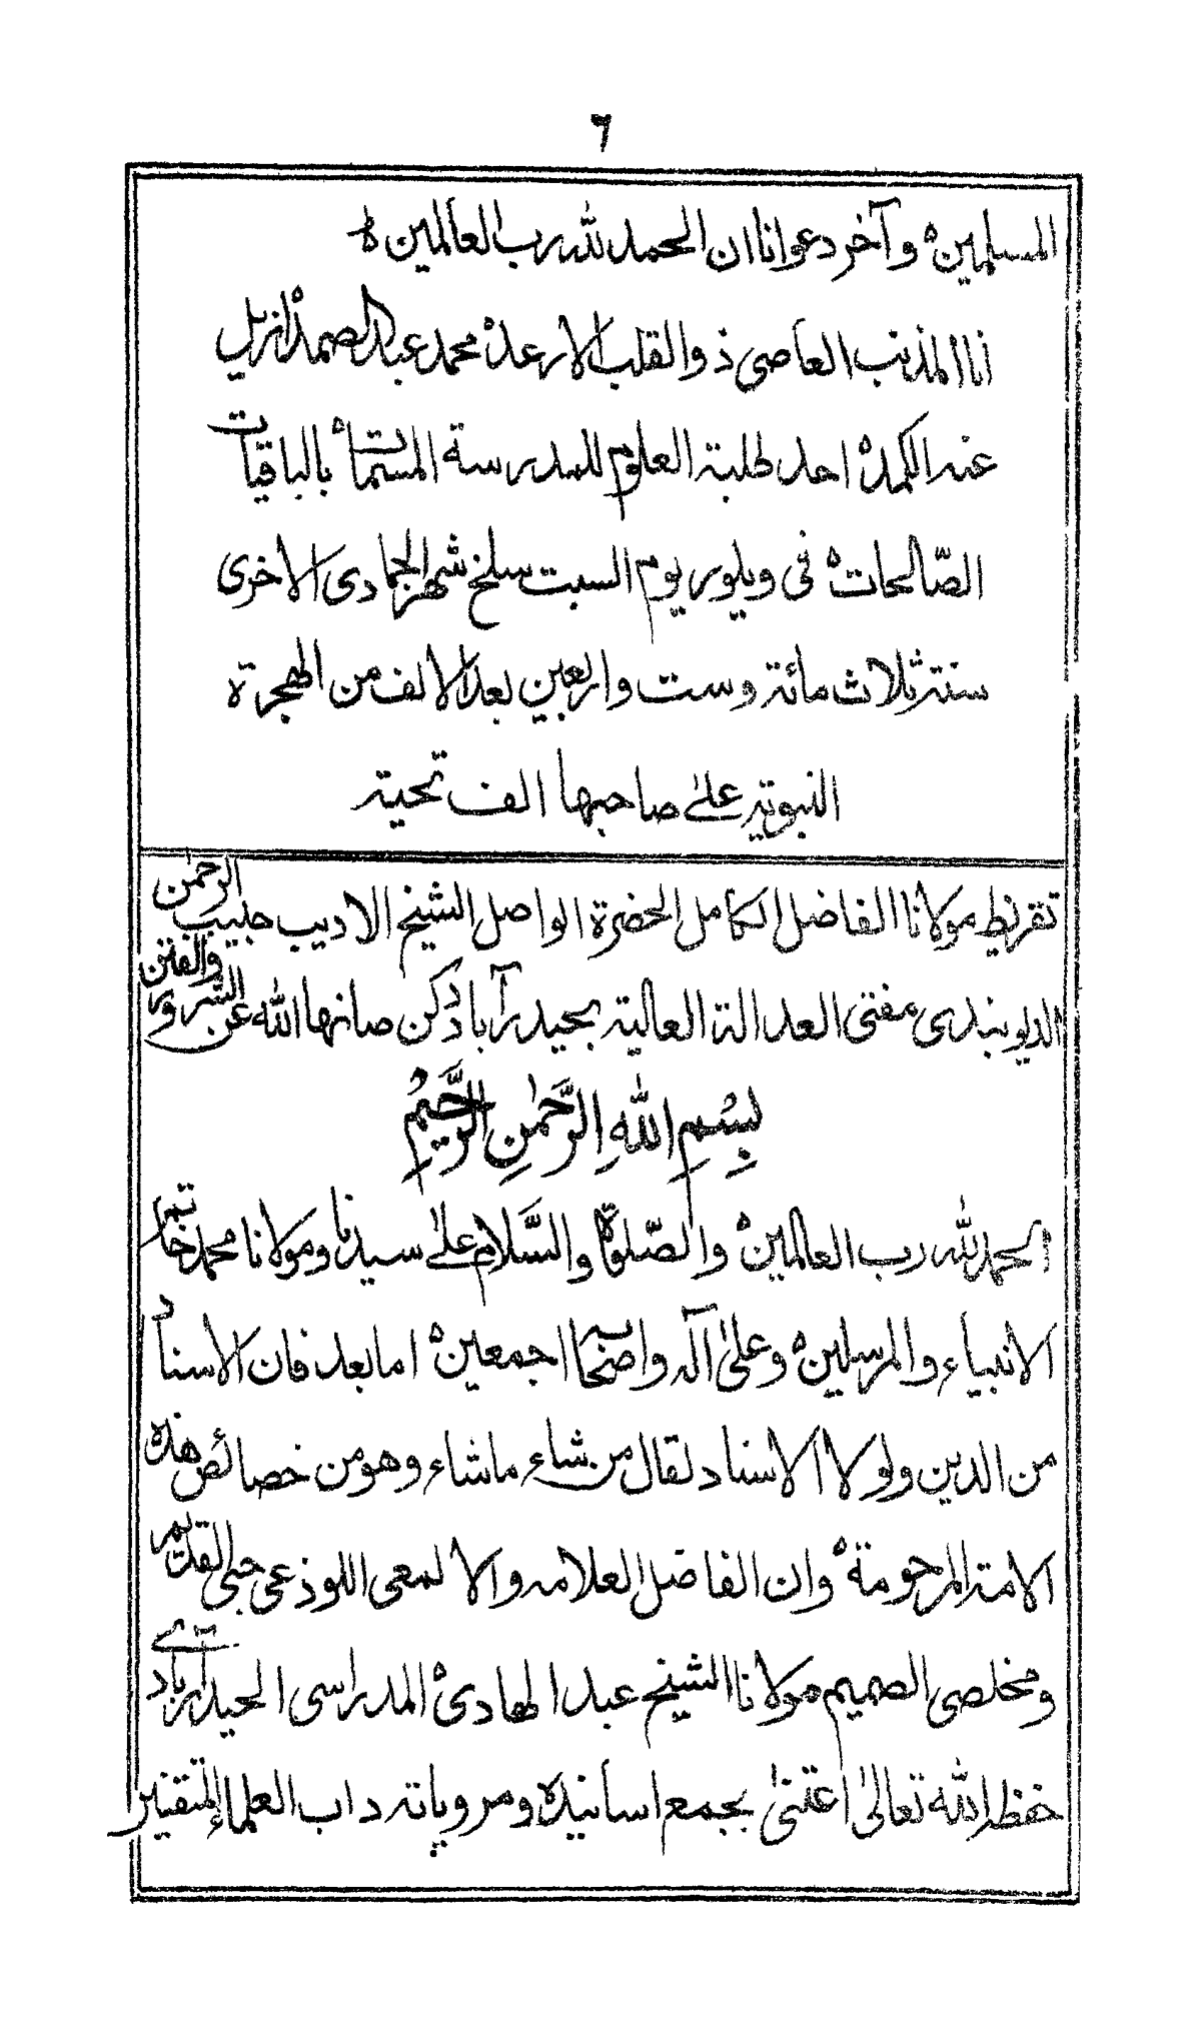 ٦
المسلمين ه وآخر دعوانا ان الحمد لله رب العالمين ه
انا المذنب العاصی ذو القلب الارعد ه محمد عبد الصمد ه ازیل
عنه الکمد ه احد طلبة العلوم للمدرسة المسمات ه بالباقیات
الصّالحات ه فی ویلور یوم السبت سلخ شهر الجمادی الاخری
سنة ثلاث مائة وست واربعین بعد الالف من الهجرة
النبویة علیٰ صاحبها الف تحیة
تقریظ مولانا الفاضل الکامل الحضرة الواصل الشیخ الادیب حبیب الرحمٰن
الدیوبندی مفتی العدالة العالیة بحیدرآباد دکن صانها الله عن السّرور والفتن
بِسْمِ اللهِ الرَّحْمٰنِ الرَّحِیْمِ
الحمد لله رب العالمین ه والصّلوٰة والسَّلام علیٰ سیدنا ومولانا محمد خاتم
الانبیاء والمرسلین ه وعلیٰ آله واصحابه اجمعین ه اما بعد فان الاسناد
من الدین ولولا الاسناد لقال من شاء ما شاء وهو من خصائص هٰذه
الامة المرحومة ه وان الفاضل العلامه والالمعی اللوذعی حبی القدیم
ومخلصی الصمیم مولانا الشیخ عبد الهادی ه المدراسی الحیدرآبادی
حفظه الله تعالیٰ اعتنیٰ بجمع اسانیده ومرویاته داب العلماء المتقنین